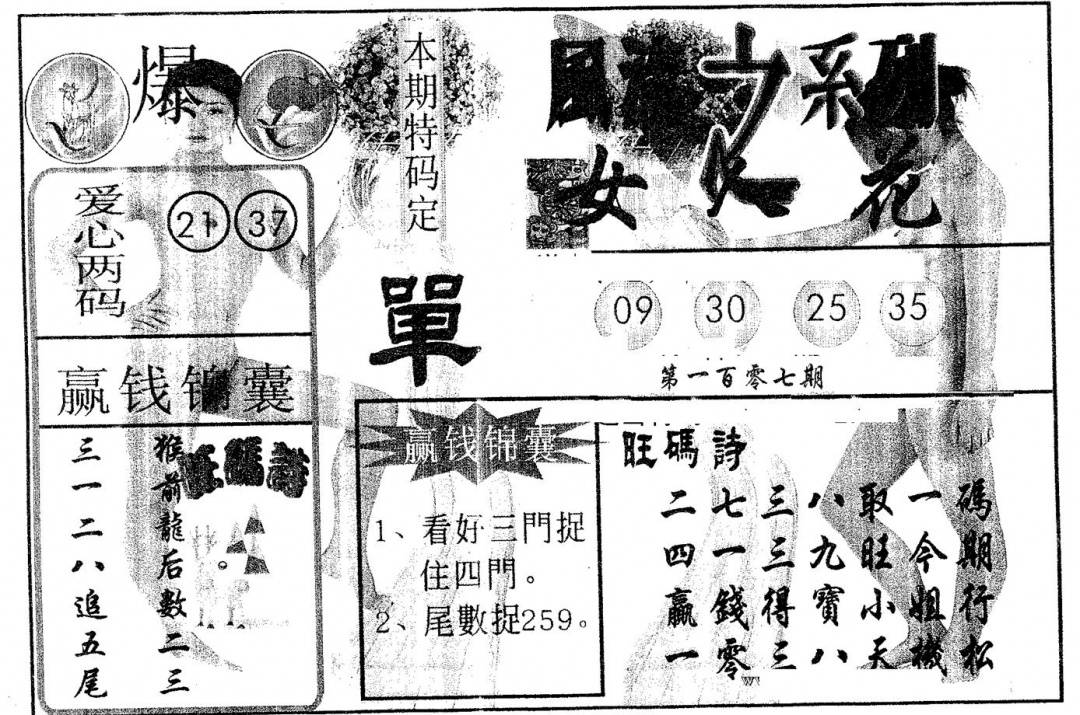 爆
本期特码定
單
之系列
女 花
爱心两码
21 37
09 30 25 35
第一百零七期
赢钱锦囊
猴前龍后數二三
三一二八追五尾
旺碼詩
赢钱锦囊
1、看好三門捉
住四門。
2、尾數捉259。
旺碼詩
二七三八取一碼
四一三九旺今期
赢錢得寶小姐行
一零三八天機松